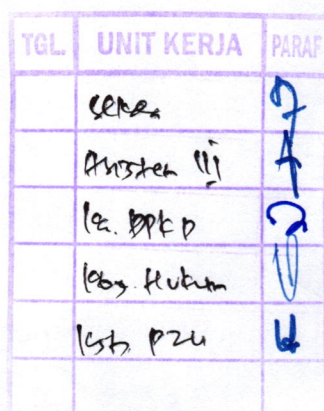 TGL. UNIT KERJA PARAF
Sekda
Asisten III
Ka. BPKD
Kabag. Hukum